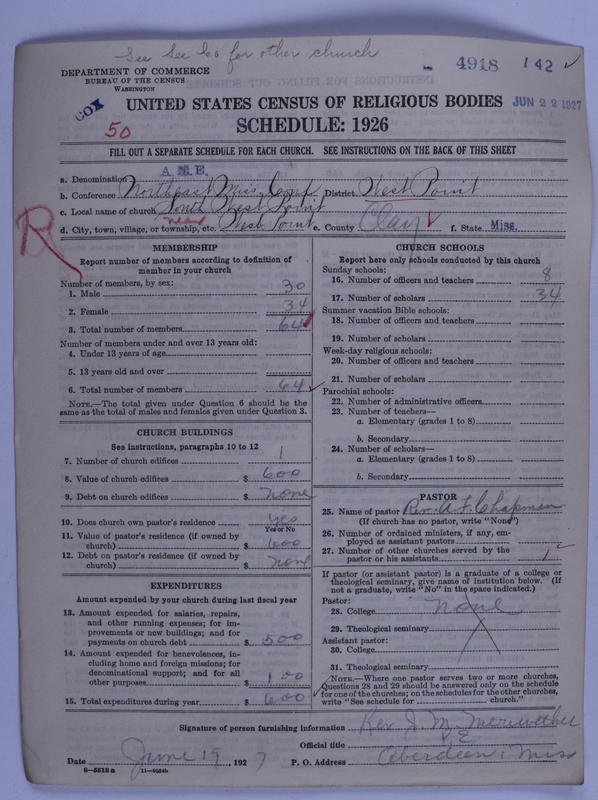 See See 60 for other church
4918 142
DEPARTMENT OF COMMERCE
BUREAU OF THE CENSUS
WASHINGTON
COX
50
UNITED STATES CENSUS OF RELIGIOUS BODIES JUN 22 1927
SCHEDULE: 1926
FILL OUT A SEPARATE SCHEDULE FOR EACH CHURCH. SEE INSTRUCTIONS ON THE BACK OF THIS SHEET
a. Denomination A.M.E.
b. Conference Northeast Miss. Conf District West Point
c. Local name of church South West Point
near
d. City, town, village, or township, etc. West Point e. County Clay f. State Miss.
R
MEMBERSHIP
Report number of members according to definition of
member in your church
Number of members, by sex:
1. Male 30
2. Female 34
3. Total number of members 64
Number of members under and over 13 years old:
4. Under 13 years of age
5. 13 years old and over
6. Total number of members 64
NOTE.—The total given under Question 6 should be the
same as the total of males and females given under Question 3.
CHURCH BUILDINGS
See instructions, paragraphs 10 to 12
7. Number of church edifices 1
8. Value of church edifices $ 600
9. Debt on church edifices $ none
10. Does church own pastor's residence yes
Yes or No
11. Value of pastor's residence (if owned by
church) $ 600
12. Debt on pastor's residence (if owned by
church) $ none
EXPENDITURES
Amount expended by your church during last fiscal year
13. Amount expended for salaries, repairs,
and other running expenses; for im-
provements or new buildings; and for
payments on church debt $ 500
14. Amount expended for benevolences, in-
cluding home and foreign missions; for
denominational support; and for all
other purposes $ 100
15. Total expenditures during year $ 600
CHURCH SCHOOLS
Report here only schools conducted by this church
Sunday schools:
16. Number of officers and teachers 8
17. Number of scholars 34
Summer vacation Bible schools:
18. Number of officers and teachers
19. Number of scholars
Week-day religious schools:
20. Number of officers and teachers
21. Number of scholars
Parochial schools:
22. Number of administrative officers
23. Number of teachers—
a. Elementary (grades 1 to 8)
b. Secondary
24. Number of scholars—
a. Elementary (grades 1 to 8)
b. Secondary
PASTOR
25. Name of pastor Rev. A. F. Chapman
(If church has no pastor, write "None")
26. Number of ordained ministers, if any, em-
ployed as assistant pastors
27. Number of other churches served by the
pastor or his assistants 1
If pastor (or assistant pastor) is a graduate of a college or
theological seminary, give name of institution below. (If
not a graduate, write "No" in the space indicated.)
Pastor:
28. College none
29. Theological seminary
Assistant pastor:
30. College
31. Theological seminary
NOTE.—Where one pastor serves two or more churches,
Questions 28 and 29 should be answered only on the schedule
for one of the churches; on the schedules for the other churches,
write "See schedule for church."
Signature of person furnishing information Rev. J. M. Meriwether
Official title P.E.
Date June 19, 1927 P. O. Address Aberdeen, Miss
8—5518a 11—9054b